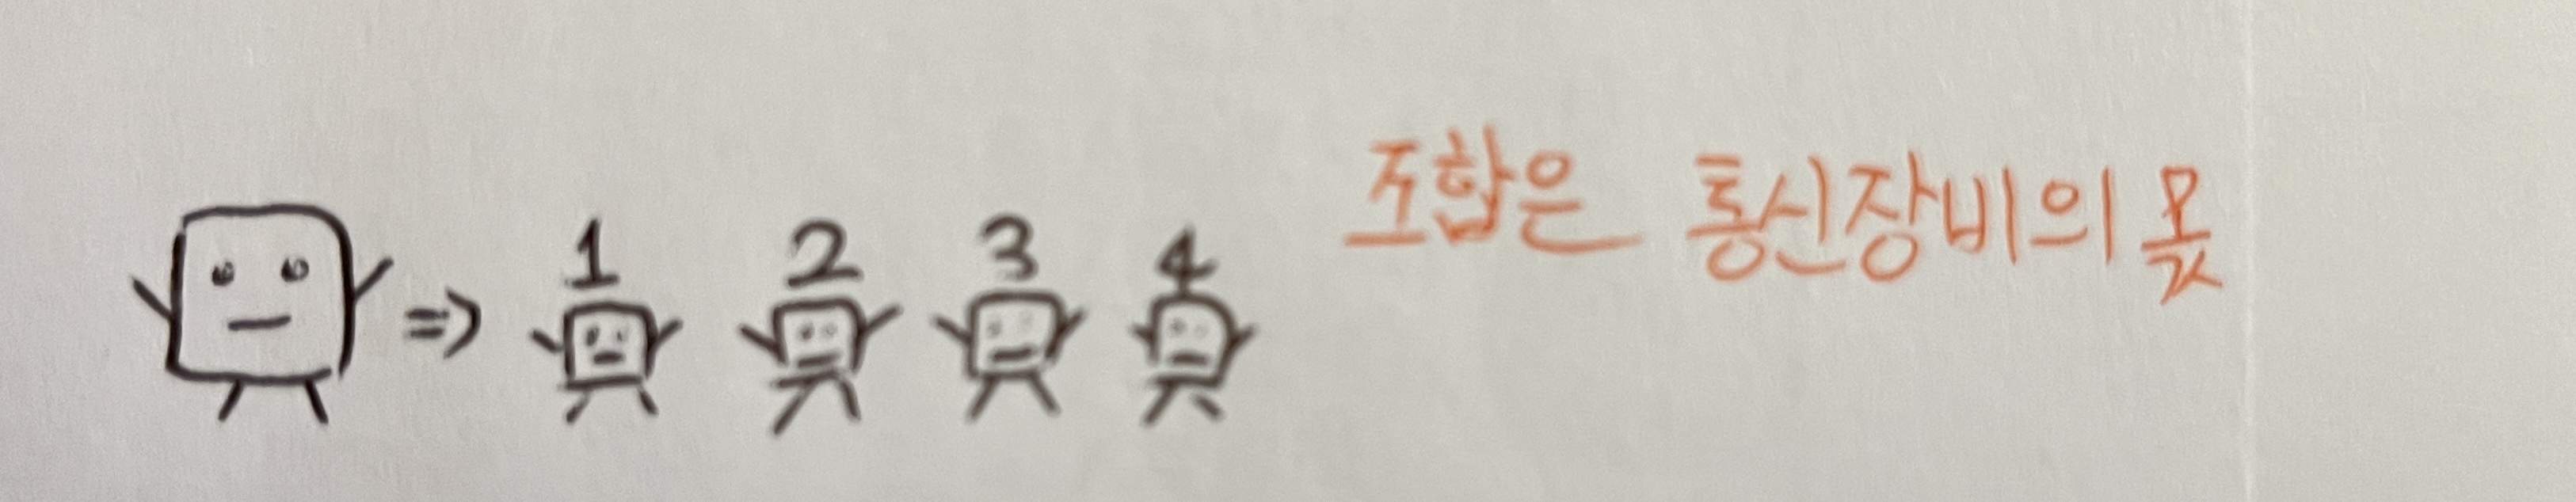 => 1 2 3 4
조합은 통신장비의 몫